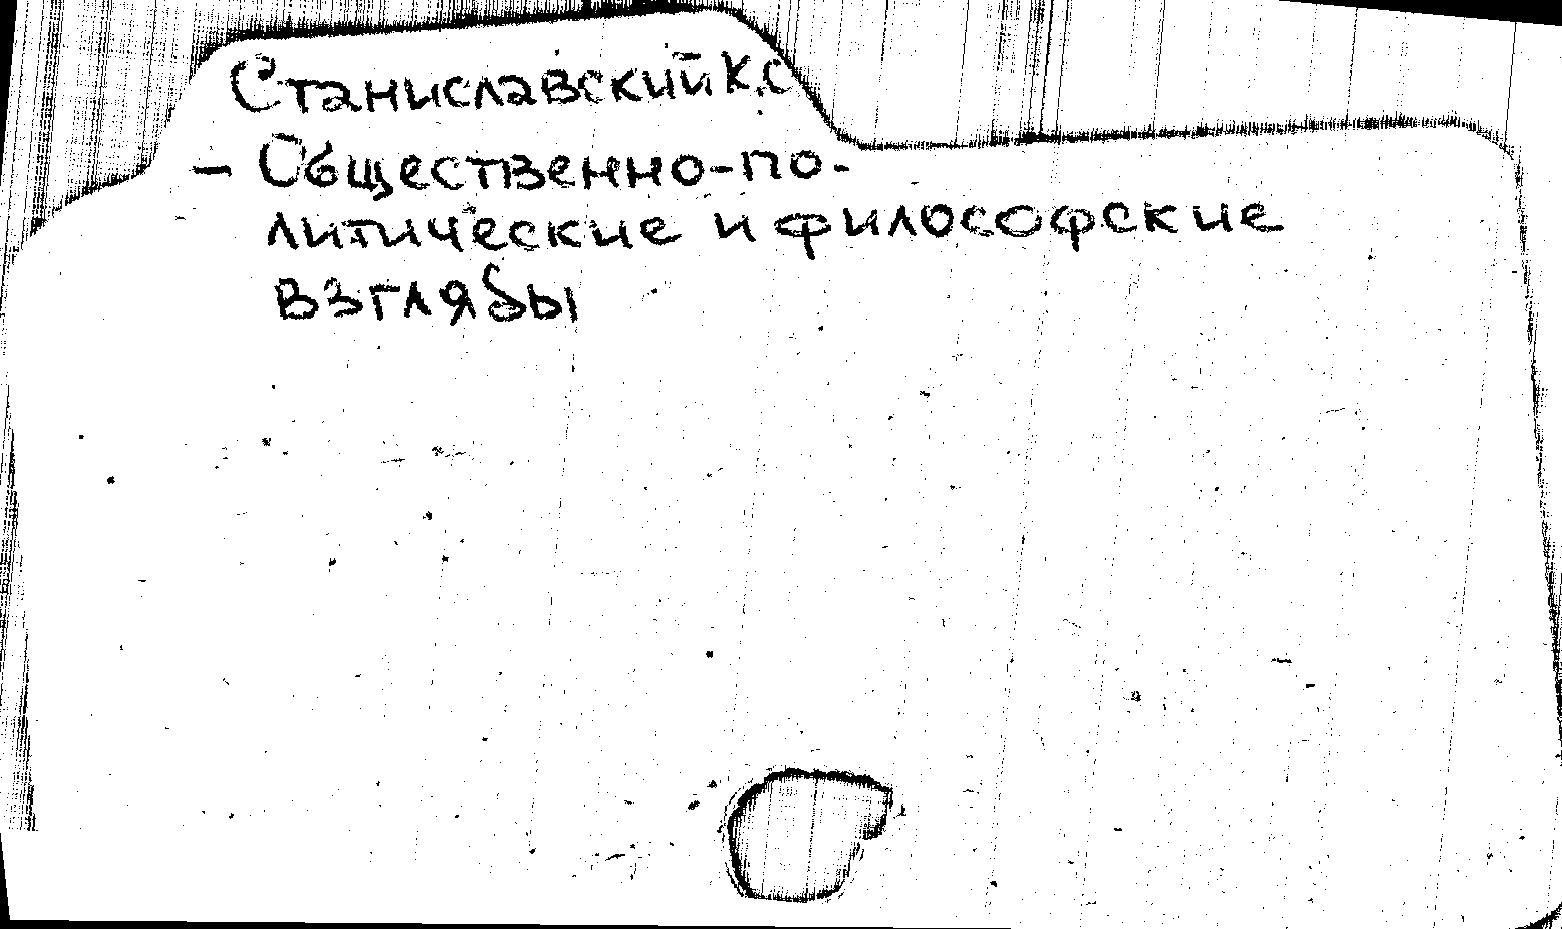 Станиславский К.С
- Общественно-по-
литические и философские
взгляды